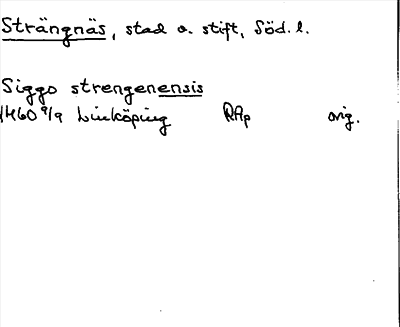 Strängnäs, stad o. stift, Söd. l.
Siggo strengenensis
1460 9/9 Linköping RAp orig.